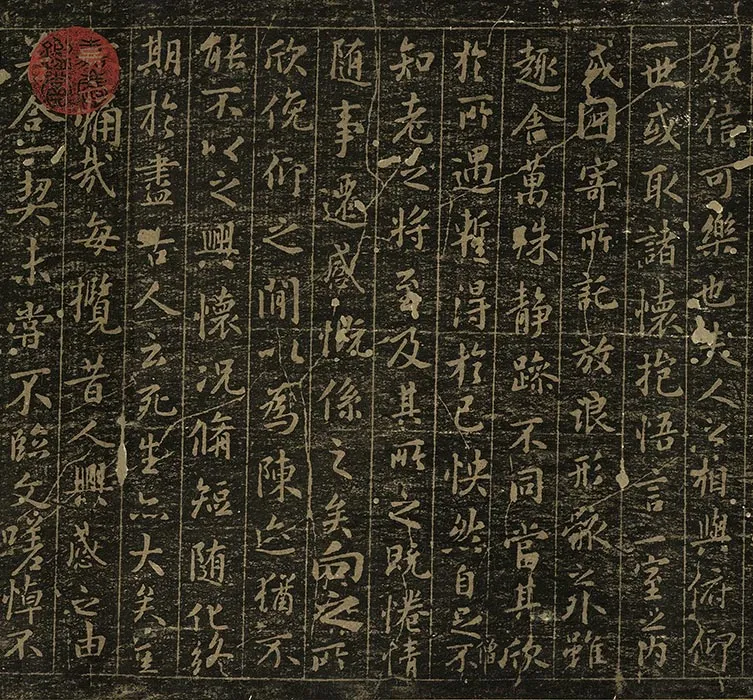 娱信可樂也夫人之相與俯仰
一世或取諸懷抱悟言一室之内
或因寄所託放浪形骸之外雖
趣舍萬殊静躁不同當其欣
於所遇蹔得於己怏然自足不
僧
知老之將至及其所之既惓情
随事遷感慨係之矣向之所
欣俛仰之閒以為陳迹猶不
能不以之興懷況脩短随化終
期於盡古人云死生亦大矣豈
痛哉每攬昔人興感之由
若合一契未嘗不臨文嗟悼不